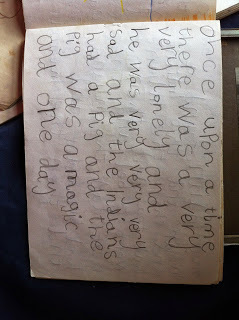 once upon a time
there was a very
very lonely and
he was very very very
sad and the Indians
had a Pig and the
Pig was a magic
and one day